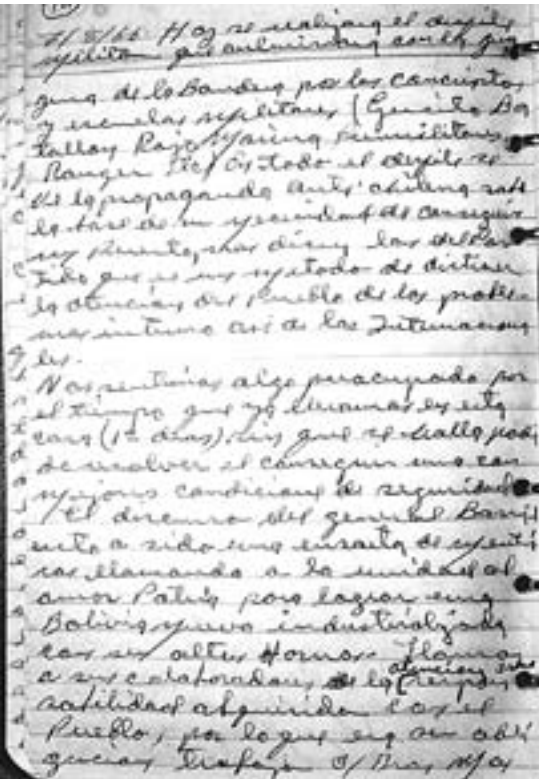 7/8/66 Hoy se realizara el desfile
militar que culminara con la jura
de la Bandera por los conscriptos
y escuelas militares (Guasito Ba
tallon Marina
Ranger etc) En todo el desfile se
ve la propaganda anti chilena sobre
la base de su necesidad de conseguir
un puerto, nos dicen los del Par
tido que es un metodo de distraer
la atencion del Pueblo de los proble
mas interno asi de los Internaciona
les.
Nos sentimos algo preocupado por
el tiempo que ya llevamos en esta
casa ( dias) sin que se halla podi
do resolver el conseguir una con
mejores condiciones de seguridad
El discurso del general Barri
ento a sido una ensarta de menti
ras llamando a la unidad al
amor Patrio para lograr una
Bolivia nueva industrializada
con sus altos Hornos. Llama
a sus colaboradores de la atencion
respon
sabilidad adquirida con el
Pueblo, por lo que era su obli
gacion trabajar